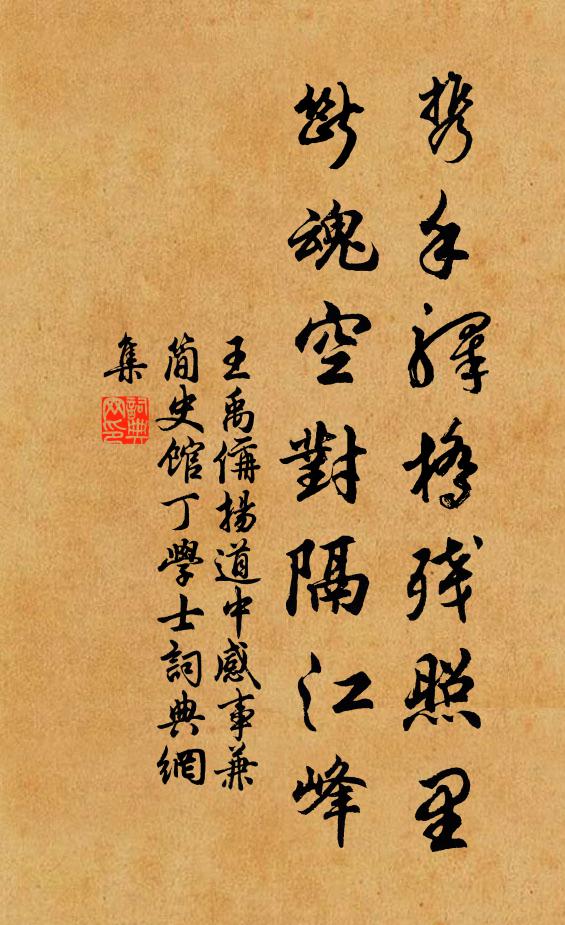 携手驛橋残照里
斷魂空對隔江峰
王禹偁揚道中感事兼
簡史館丁學士詞典網
集
詞典網印